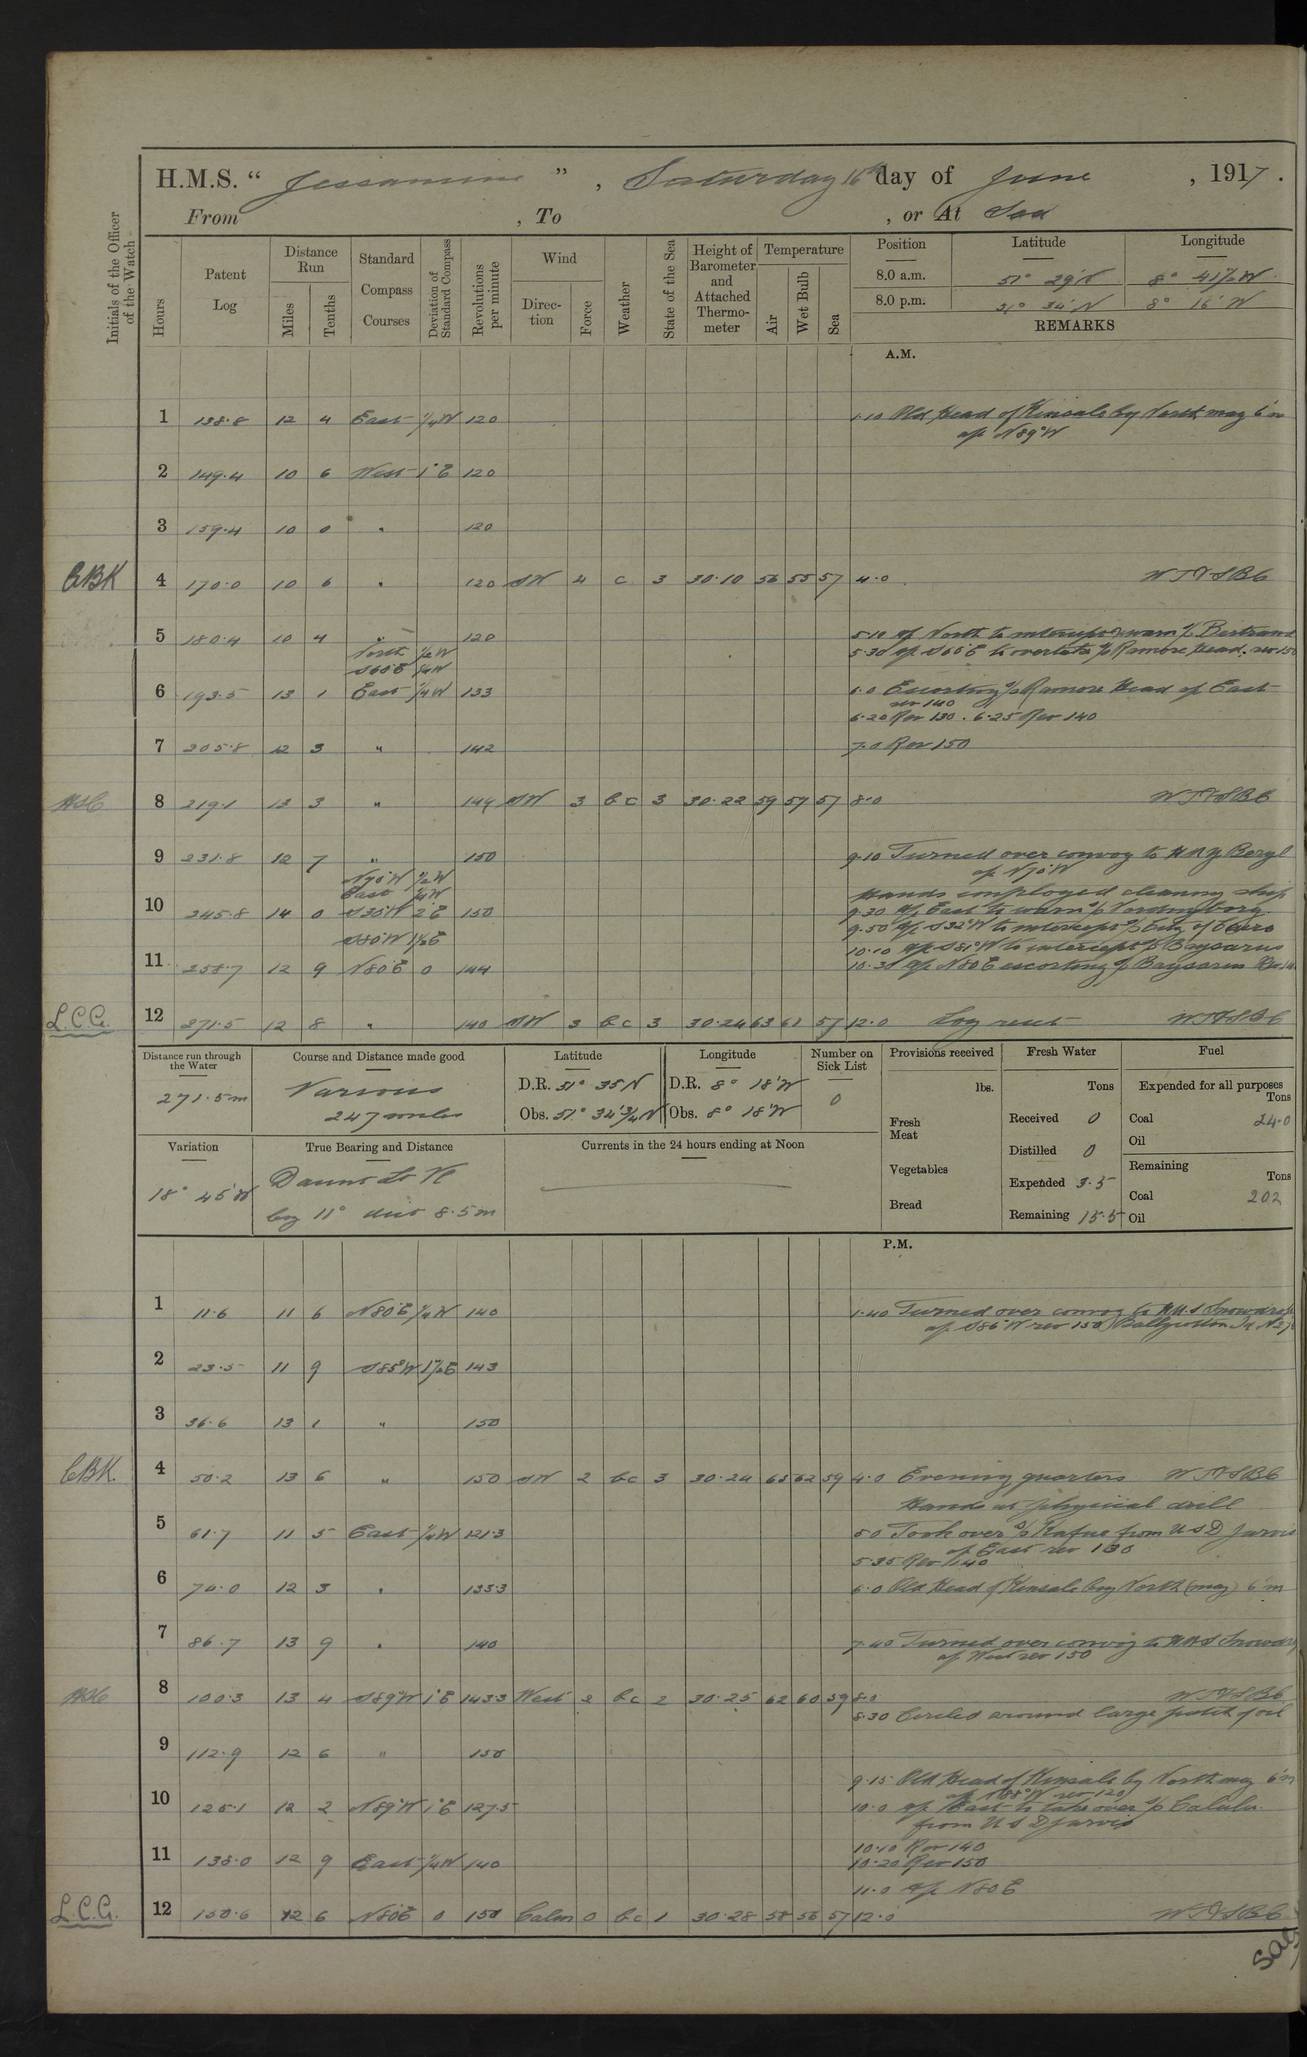 H.M.S. “ Jessamine ” , Saturday 16th day of June , 1917 .
From , To , or At Sea
Initials of the Officer of the Watch
Hours
Patent Log
Distance Run
Miles
Tenths
Standard Compass Courses
Deviation of Standard Compass
Revolutions per minute
Wind
Direction
Force
Weather
State of the Sea
Height of Barometer and Attached Thermometer
Temperature
Air
Wet Bulb
Sea
Position Latitude Longitude
8.0 a.m. 51° 29'N 8° 41½'W
8.0 p.m. 51° 34'N 8° 16' W
REMARKS
A.M.
1 138.8 12 4 East ¼W 120 1.10 Old Head of Kinsale by North mag 6'm
a/c N89°W
2 149.4 10 6 West 1°E 120
3 159.4 10 0 " 120
CBK 4 170.0 10 6 " 120 SW 4 c 3 30.10 56 55 57 4.0
5 180.4 10 4 " 120 5.10 a/c North to intercept & warn s/s Bertrand
North ½W 5.30 a/c S65°E to overtake s/s Ramore Head. rev 150
S65°E ¼W
6 193.5 13 1 East ¼W 133 6.0 Escorting s/s Ramore Head a/c East
rev 140
6.20 Rev 130 . 6.25 Rev 140
7 205.8 12 3 " 142 7.0 Rev 150
8 219.1 13 3 " 149 SW 3 bc 3 30.22 59 57 57 8.0
9 231.8 12 7 " 150 9.10 Turned over convoy to HMY Beryl
a/c N70°W
N70°W ½W
East ¼W Hands employed cleaning ship
10 245.8 14 0 S30°W 2°E 150 9.30 a/c East to warn s/s Nordingborg
9.50 a/c S32°W to intercept s/s City of Cairo
S80°W 1½E 10.10 a/c S81°W to intercept s/s Baysarua
11 258.7 12 9 N80E 0 144 10.30 a/c N80E escorting s/s Baysarua Rev 14
L.C.G. 12 271.5 12 8 " 140 SW 3 bc 3 30.24 63 61 57 12.0 Log reset
Distance run through the Water
271.5m
Course and Distance made good
Various
247 miles
Latitude
D.R. 51° 35N
Obs. 51° 34'¾N
Longitude
D.R. 8° 18'W
Obs. 8° 18'W
Number on Sick List
0
Provisions received
lbs.
Fresh Meat
Vegetables
Bread
Fresh Water
Tons
Received 0
Distilled 0
Expended 3.5
Remaining 15.5
Fuel
Expended for all purposes
Tons
Coal 24.0
Oil
Remaining
Tons
Coal 202
Oil
Variation
18° 45'W
True Bearing and Distance
Daunt Lt V
brg 11° dist 8.5m
Currents in the 24 hours ending at Noon
P.M.
1 11.6 11 6 N80°E ¼W 140 1.40 Turned over convoy to HMS Snowdrop
a/c S86°W rev 150
2 23.5 11 9 S85°W 1½E 143
3 36.6 13 1 " 150
CBK. 4 50.2 13 6 " 150 SW 2 bc 3 30.24 62 59 4.0 Evening quarters
Hands at physical drill
5 61.7 11 5 East ¼W 121.3 5.0 Took over s/s from U S D Jarvis
a/c East rev 130
5.35 Rev 140
6 74.0 12 3 " 133.3 6.0 Old Head of Kinsale brg North (mag) 6'm
7 86.7 13 9 " 140 7.40 Turned over convoy to HMS Snowdrop
a/c West rev 150
8 100.3 13 4 S89°W 1°E 143.3 West 2 bc 2 30.25 62 60 59 8.0
8.30 Circled around large patch of oil
9 112.9 12 6 " 150
9.15 Old Head of Kinsale by North mag 6'm
a/c N88°W rev 120
10 125.1 12 2 N89°W 1°E 127.5 10.0 a/c East to take over s/s Calulu
from U S D Jarvis
10.10 Rev 140
11 138.0 12 9 East ¼W 140 10.20 Rev 150
11.0 a/c N80E
L.C.G. 12 150.6 12 6 N80E 0 150 Calm 0 bc 1 30.28 58 56 57 12.0